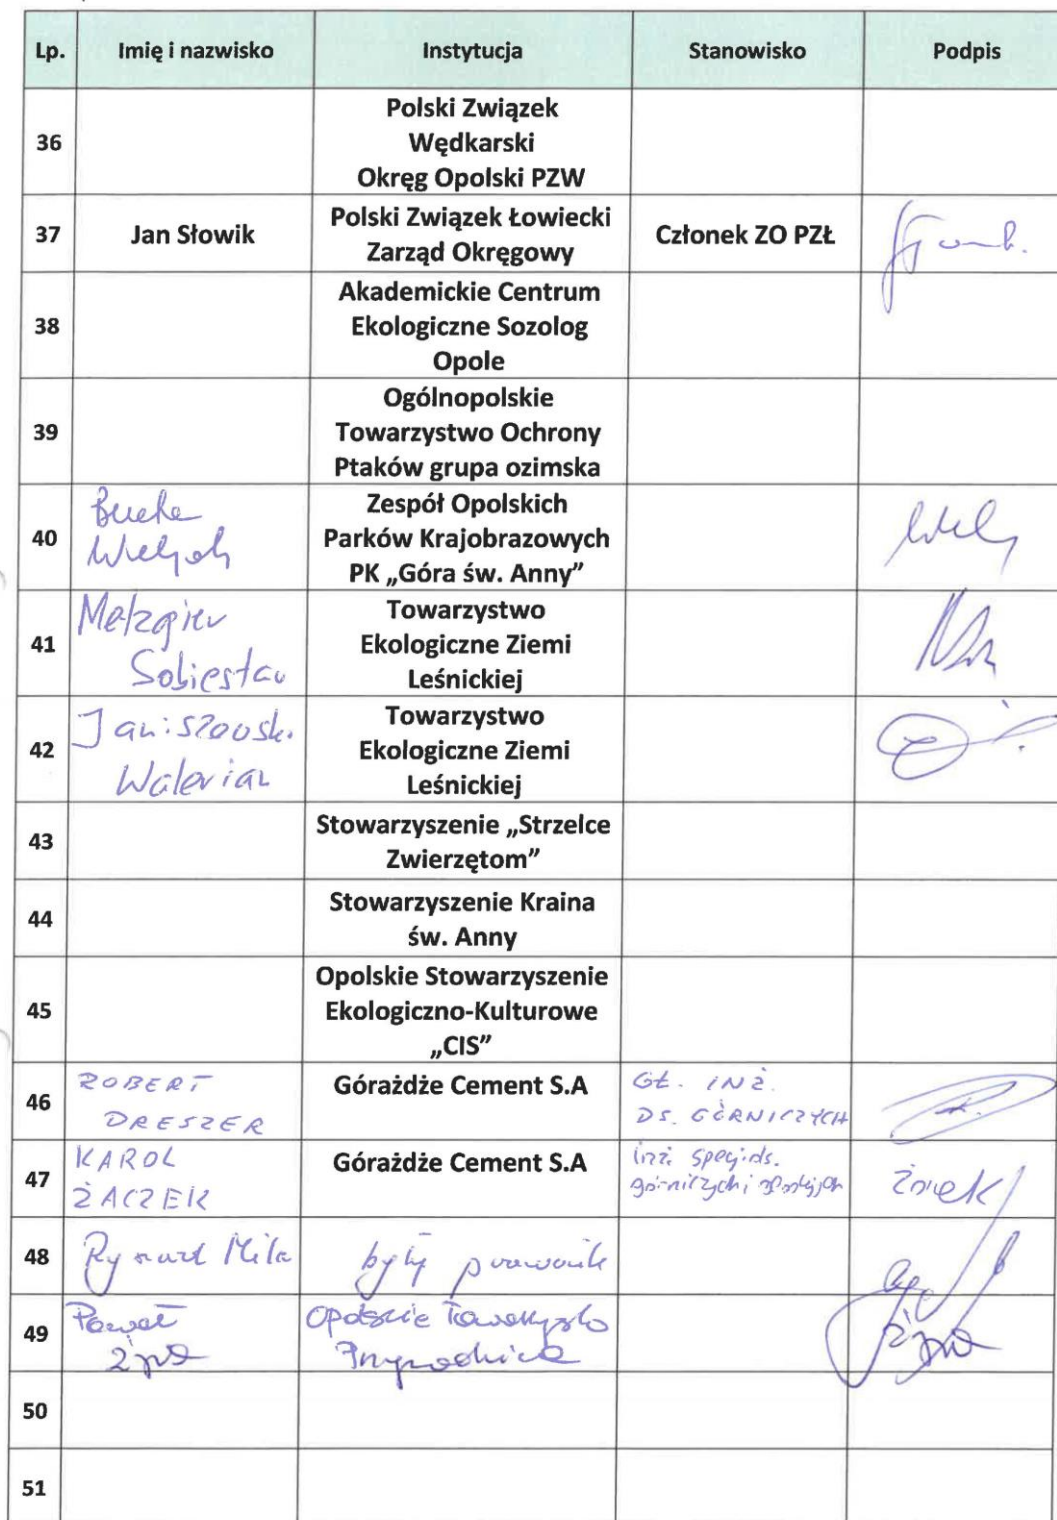 Lp. Imię i nazwisko Instytucja Stanowisko Podpis
36
Polski Związek
Wędkarski
Okręg Opolski PZW
37 Jan Słowik
Polski Związek Łowiecki
Zarząd Okręgowy
Członek ZO PZŁ
38
Akademickie Centrum
Ekologiczne Sozolog
Opole
39
Ogólnopolskie
Towarzystwo Ochrony
Ptaków grupa ozimska
40
Zespół Opolskich
Parków Krajobrazowych
PK „Góra św. Anny”
41
Sobiesław
Towarzystwo
Ekologiczne Ziemi
Leśnickiej
42
Janiszowski
Walerian
Towarzystwo
Ekologiczne Ziemi
Leśnickiej
43
Stowarzyszenie „Strzelce
Zwierzętom”
44
Stowarzyszenie Kraina
św. Anny
45
Opolskie Stowarzyszenie
Ekologiczno-Kulturowe
„CIS”
46
ROBERT
DRESZER
Górażdże Cement S.A
GŁ. INŻ.
DS. GÓRNICZYCH
47
KAROL
ŻACZEK
Górażdże Cement S.A
inż. specj. ds.
górniczych i
48
były
49
Paweł
Opolskie Towarzystwo
Przyrodnicze
50
51